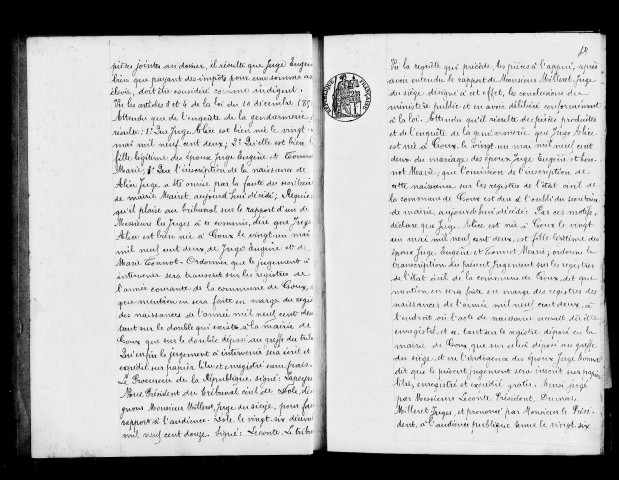 pièces jointes au dossier, il résulte que Juge Eugène
bien que payant des impôts pour une somme
élevée, doit être considéré comme indigent.
Vu les articles 3 et 4 de la loi du 10 décembre 185
Attendu que de l'enquête de la gendarmerie, il
résulte: 1° Que Juge Alice est bien née le vingt-
mai mil neuf cent deux; 2° Qu'elle est bien la
fille légitime des époux Juge Eugène et Tonnot
Marie; Que l'inscription de la naissance de
Alice Juge a été omise par la faute du secrétaire
de mairie Mairet, aujourd'hui décédé; Requiert
qu'il plaise au tribunal sur le rapport d'un de
Messieurs les Juges à ce commis, dire que Juge
Alice est bien née à Goux le vingt-un mai
mil neuf cent deux, de Juge Eugène et de
Marie Tonnot. Ordonner que le jugement à
intervenir sera transcrit sur les registres de
l'année courante de la commune de Goux,
que mention en sera faite en marge du regis
des naissances de l'année mil neuf cent deux
tant sur le double qui existe à la mairie de
Goux que sur le double déposé au greffe du tribu
Qu'enfin le jugement à intervenir sera écrit et
expédié sur papier libre et enregistré sans frais.
Le Procureur de la République, signé:
Nous, Président du tribunal civil de Dole, dési
gnons Monsieur Milleret, Juge du siège, pour faire
rapport à l'audience. Dole le vingt-six décem
mil neuf cent douze. Signé: Leconte. Le tribu
Vu la requête qui précède, les pièces à l'appui, après
avoir entendu le rapport de Monsieur Milleret, Juge
du siège désigné à cet effet, les conclusions du
ministère public et en avoir délibéré conformément
à la loi. Attendu qu'il résulte des pièces produites
et de l'enquête de la gendarmerie que Juge Alice
est née à Goux le vingt-un mai mil neuf cent
deux du mariage des époux Juge Eugène et Ton-
not Marie; que l'omission de l'inscription de
cette naissance sur les registres de l'état civil de
la commune de Goux est due à l'oubli du secrétaire
de mairie, aujourd'hui décédé; Par ces motifs,
déclare que Juge Alice est née à Goux le vingt
un mai mil neuf cent deux, est fille légitime des
époux Juge Eugène et Tonnot Marie; ordonne la
transcription du présent Jugement sur les registres
de l'état civil de la commune de Goux, dit que
mention en sera faite en marge des registres des
naissances de l'année mil neuf cent deux, à
l'endroit où l'acte de naissance aurait dû être
enregistré, et ce, tant sur le registre déposé en la
mairie de Goux que sur celui déposé au greffe
du siège, et vu l'indigence des époux Juge Tonnot
dit que le présent jugement sera inscrit sur papier
libre, enregistré et expédié gratis. Ainsi jugé
par Messieurs Leconte, Président, Dumas,
Milleret Juges, et prononcé par Monsieur le Prési-
dent, à l'audience publique tenue le vingt-six